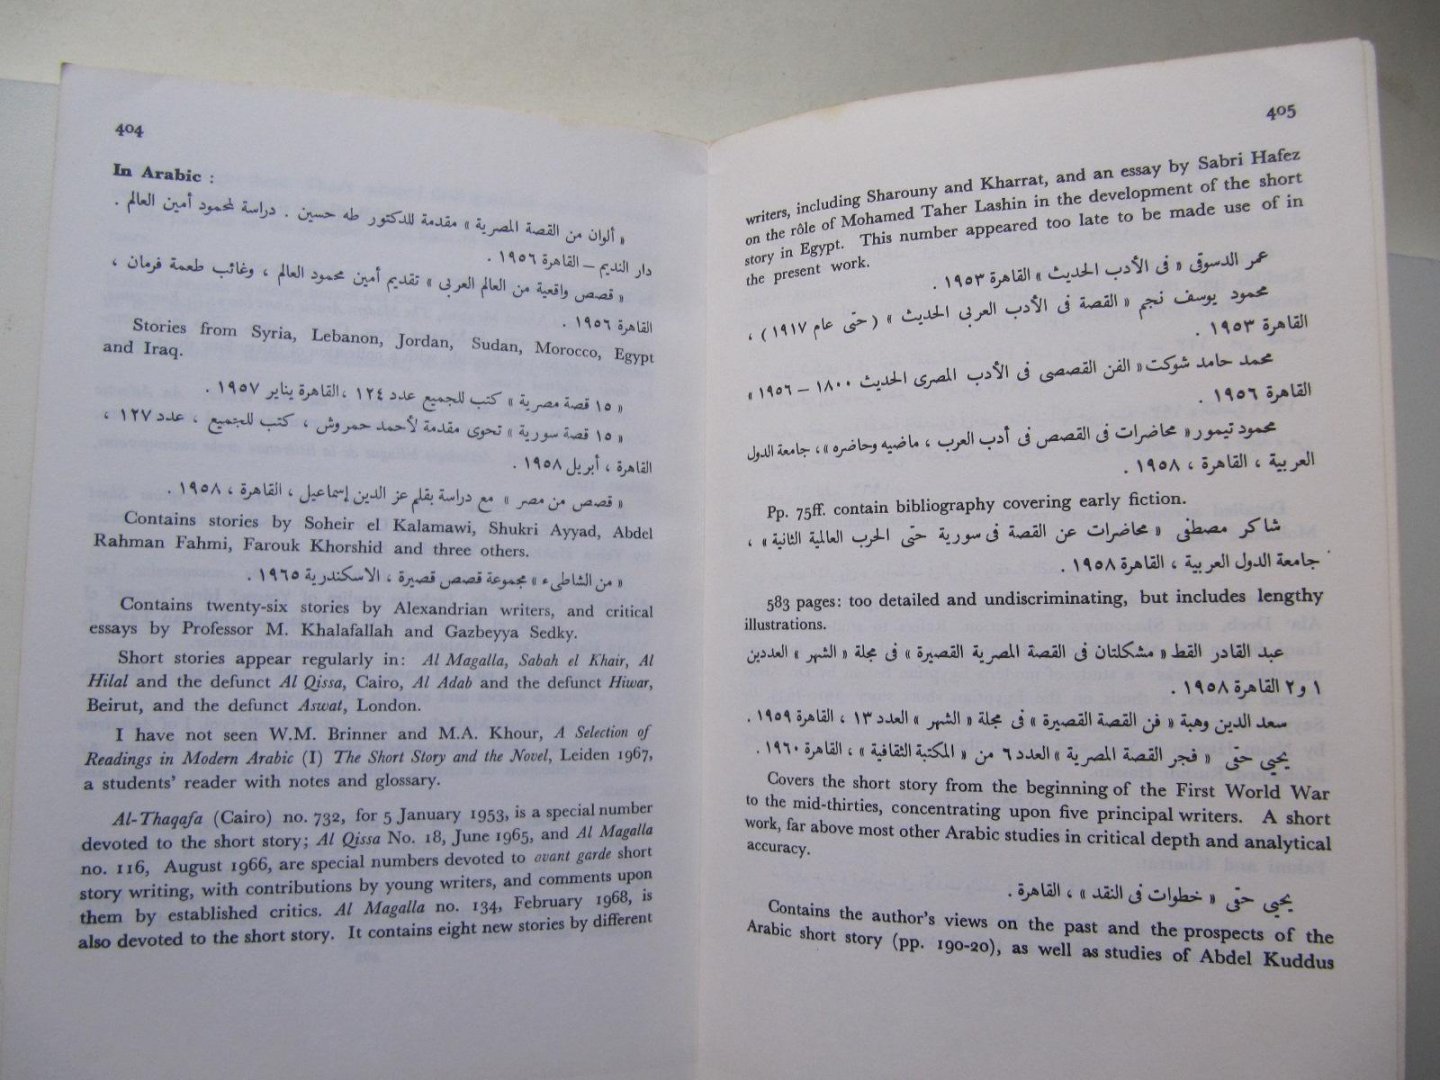 404
In Arabic :
« ألوان من القصة المصرية » مقدمة للدكتور طه حسين . دراسة لمحمود أمين العالم .
دار النديم – القاهرة ١٩٥٦ .
« قصص واقعية من العالم العربى » تقديم أمين محمود العالم ، وغائب طعمة فرمان ،
القاهرة ١٩٥٦ .
Stories from Syria, Lebanon, Jordan, Sudan, Morocco, Egypt
and Iraq.
« ١٥ قصة مصرية » كتب للجميع عدد ١٢٤ ، القاهرة يناير ١٩٥٧ .
« ١٥ قصة سورية » تحوى مقدمة لأحمد حمروش ، كتب للجميع ، عدد ١٢٧ ،
القاهرة ، أبريل ١٩٥٨ .
« قصص من مصر » مع دراسة بقلم عز الدين إسماعيل ، القاهرة ، ١٩٥٨ .
Contains stories by Soheir el Kalamawi, Shukri Ayyad, Abdel
Rahman Fahmi, Farouk Khorshid and three others.
« من الشاطىء » مجموعة قصص قصيرة ، الاسكندرية ١٩٦٥ .
Contains twenty-six stories by Alexandrian writers, and critical
essays by Professor M. Khalafallah and Gazbeyya Sedky.
Short stories appear regularly in: Al Magalla, Sabah el Khair, Al
Hilal and the defunct Al Qissa, Cairo, Al Adab and the defunct Hiwar,
Beirut, and the defunct Aswat, London.
I have not seen W.M. Brinner and M.A. Khour, A Selection of
Readings in Modern Arabic (I) The Short Story and the Novel, Leiden 1967,
a students' reader with notes and glossary.
Al-Thaqafa (Cairo) no. 732, for 5 January 1953, is a special number
devoted to the short story; Al Qissa No. 18, June 1965, and Al Magalla
no. 116, August 1966, are special numbers devoted to avant garde short
story writing, with contributions by young writers, and comments upon
them by established critics. Al Magalla no. 134, February 1968, is
also devoted to the short story. It contains eight new stories by different
405
writers, including Sharouny and Kharrat, and an essay by Sabri Hafez
on the rôle of Mohamed Taher Lashin in the development of the short
story in Egypt. This number appeared too late to be made use of in
the present work.
عمر الدسوقى « فى الأدب الحديث » القاهرة ١٩٥٣ .
محمود يوسف نجم « القصة فى الأدب العربى الحديث » ( حتى عام ١٩١٧ ) ،
القاهرة ١٩٥٣ .
محمد حامد شوكت « الفن القصصى فى الأدب المصرى الحديث ١٨٠٠ – ١٩٥٦ »
القاهرة ١٩٥٦ .
محمود تيمور « محاضرات فى القصص فى أدب العرب ، ماضيه وحاضره » ، جامعة الدول
العربية ، القاهرة ، ١٩٥٨ .
Pp. 75ff. contain bibliography covering early fiction.
شاكر مصطفى « محاضرات عن القصة فى سورية حتى الحرب العالمية الثانية » ،
جامعة الدول العربية ، القاهرة ١٩٥٨ .
583 pages: too detailed and undiscriminating, but includes lengthy
illustrations.
عبد القادر القط « مشكلتان فى القصة المصرية القصيرة » فى مجلة « الشهر » العددين
١ و ٢ القاهرة ١٩٥٨ .
سعد الدين وهبة « فن القصة القصيرة » فى مجلة « الشهر » العدد ١٣ ، القاهرة ١٩٥٩ .
يحيى حقى « فجر القصة المصرية » العدد ٦ من « المكتبة الثقافية » ، القاهرة ١٩٦٠ .
Covers the short story from the beginning of the First World War
to the mid-thirties, concentrating upon five principal writers. A short
work, far above most other Arabic studies in critical depth and analytical
accuracy.
يحيى حقى « خطوات فى النقد » ، القاهرة .
Contains the author's views on the past and the prospects of the
Arabic short story (pp. 190-20), as well as studies of Abdel Kuddus